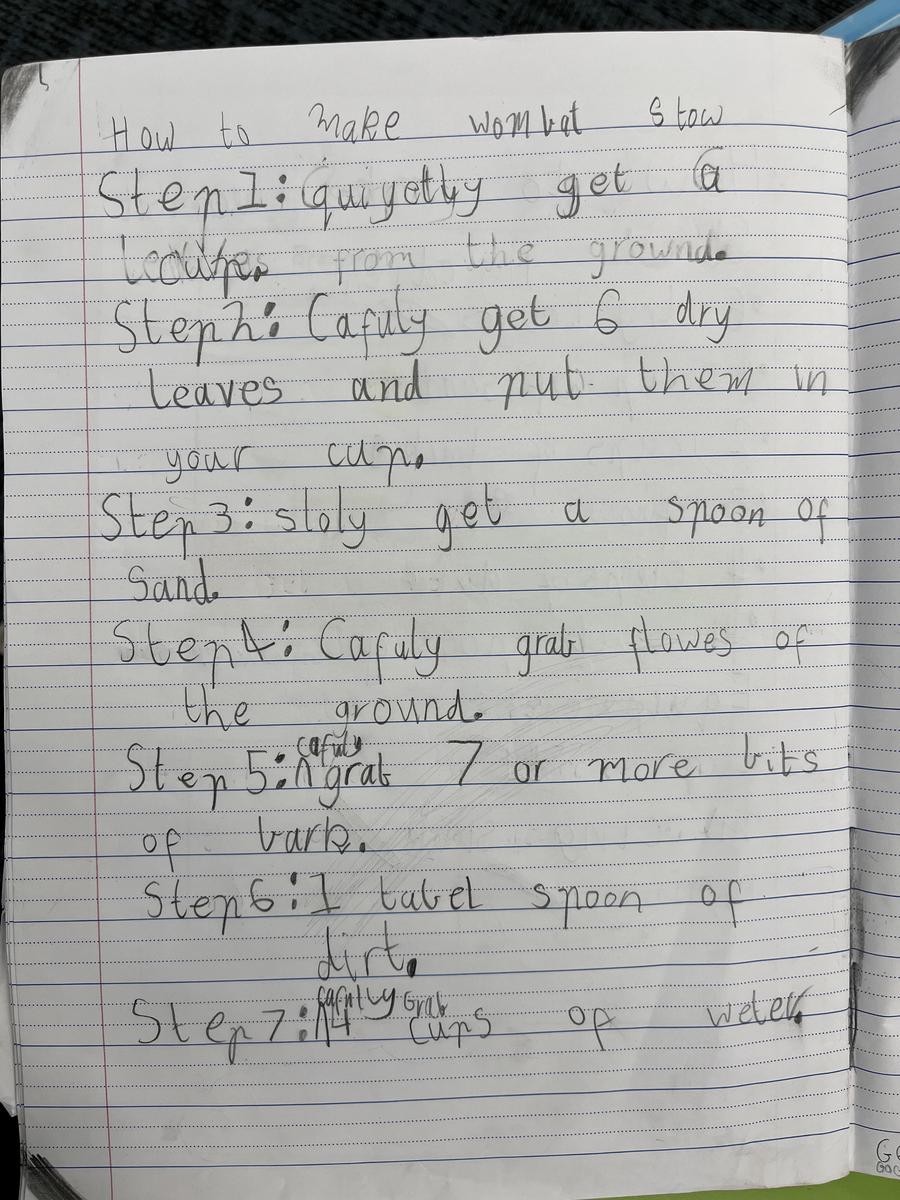 How to make wombat stow
Step 1: quiyetly get a
from the ground.
Step 2: Cafuly get 6 dry
leaves and put them in
your cup.
Step 3: sloly get a spoon of
Sand.
Step 4: Cafuly grab flowes of
the ground.
cafuly
Step 5: ^ grab 7 or more bits
of bark.
Step 6: 1 tabel spoon of
dirt.
Grab
Step 7: ^ 4 cups of weter.